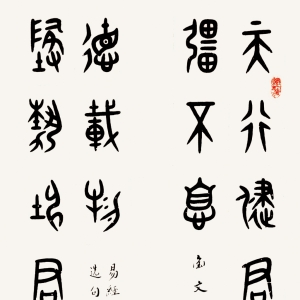 天行健君
彊不息
金文
德載物
易經
選句
墬勢坤君